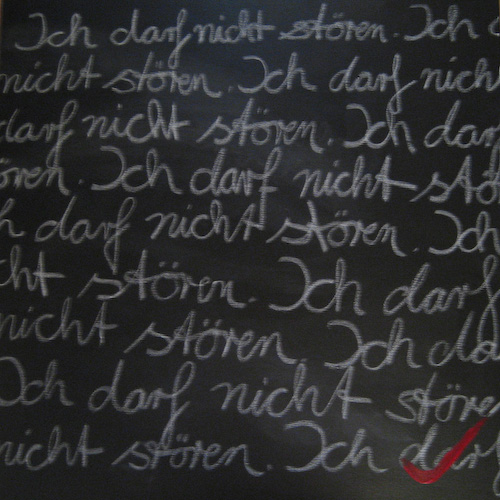 Ich darf nicht stören. Ich
nicht stören. Ich darf nich
darf nicht stören. Ich dar
ören. Ich darf nicht stö
h darf nicht stören. Ich
cht stören. Ich darf
nicht stören. Ich da
Ich darf nicht stören
nicht stören. Ich darf